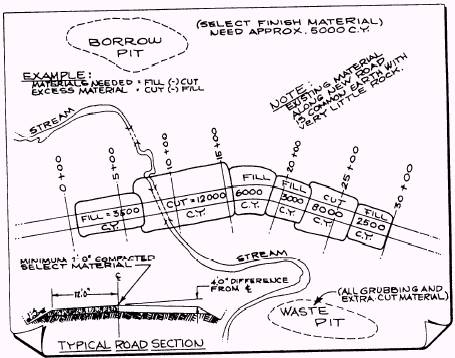 BORROW
PIT
(SELECT FINISH MATERIAL)
NEED APPROX. 5000 C.Y.
EXAMPLE:
MATERIALS NEEDED = FILL (-) CUT
EXCESS MATERIAL = CUT (-) FILL
NOTE:
EXISTING MATERIAL
ALONG NEW ROAD
IS COMMON EARTH WITH
VERY LITTLE ROCK.
STREAM
0+00
5+00
10+00
15+00
20+00
25+00
30+00
FILL = 3500
C.Y.
CUT = 12000
C.Y.
FILL
6000
C.Y.
FILL
3000
C.Y.
CUT
8000
C.Y.
FILL
2500
C.Y.
STREAM
MINIMUM 1'0" COMPACTED
SELECT MATERIAL
℄
12'0"
4'0" DIFFERENCE
FROM ℄
(ALL GRUBBING AND
EXTRA CUT MATERIAL)
WASTE
PIT
TYPICAL ROAD SECTION